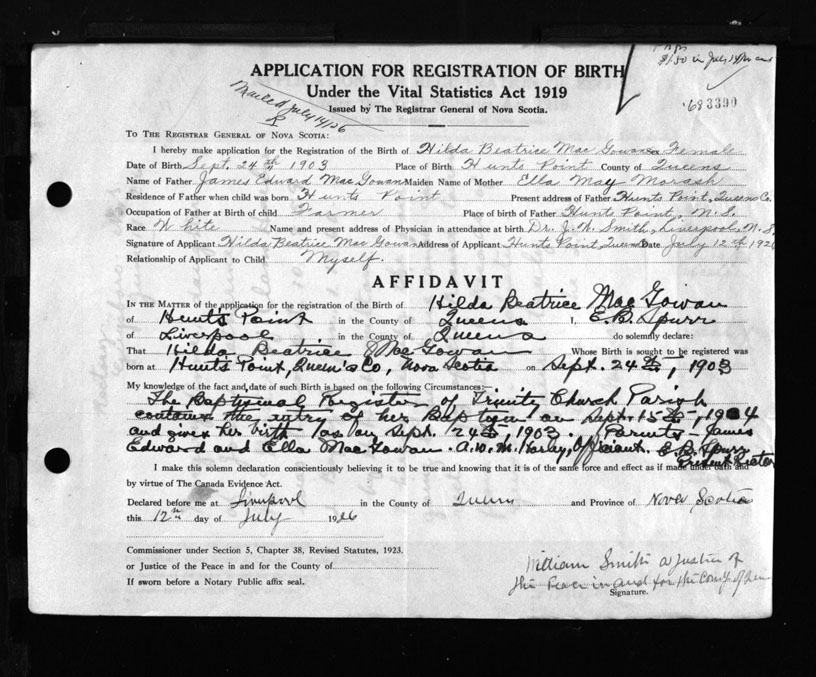 $1.50 in July 14
APPLICATION FOR REGISTRATION OF BIRTH
Under the Vital Statistics Act 1919
Issued by The Registrar General of Nova Scotia.
Mailed July 14/26
683390
TO THE REGISTRAR GENERAL OF NOVA SCOTIA:
I hereby make application for the Registration of the Birth of Hilda Beatrice Mac Gowan Female
Date of Birth Sept. 24th 1903 Place of Birth Hunts Point County of Queens
Name of Father James Edward Mac Gowan Maiden Name of Mother Ella May Morash
Residence of Father when child was born Hunts Point Present address of Father Hunts Point, Queens Co.
Occupation of Father at Birth of child Farmer Place of birth of Father Hunts Point, N.S.
Race White Name and present address of Physician in attendance at birth Dr. J. W. Smith, Liverpool, N.S.
Signature of Applicant Hilda Beatrice Mac Gowan Address of Applicant Hunts Point, Queens Date July 12th 192
Relationship of Applicant to Child Myself.
AFFIDAVIT
IN THE MATTER of the application for the registration of the Birth of Hilda Beatrice Mac Gowan
of Hunts Point in the County of Queens I, E. B. Spurr
of Liverpool in the County of Queens do solemnly declare:
That Hilda Beatrice MacGowan Whose Birth is sought to be registered was
born at Hunts Point, Queen's Co, Nova Scotia on Sept. 24th, 1903
My knowledge of the fact and date of such Birth is based on the following Circumstances:—
The Baptismal Register of Trinity Church Parish
contains the entry of her Baptism on Sept. 15th, 1904
and gives her birth as on Sept. 24th, 1903. Parents James
Edward and Ella MacGowan. A. W. M. Harley, Officiant. E. B. Spurr
Rector
I make this solemn declaration conscientiously believing it to be true and knowing that it is of the same force and effect as if made under oath and
by virtue of The Canada Evidence Act.
Declared before me at Liverpool in the County of Queens and Province of Nova Scotia
this 12th day of July 1926
Commissioner under Section 5, Chapter 38, Revised Statutes, 1923.
or Justice of the Peace in and for the County of
If sworn before a Notary Public affix seal.
William Smith a Justice of
the Peace in and for the County of
Signature.